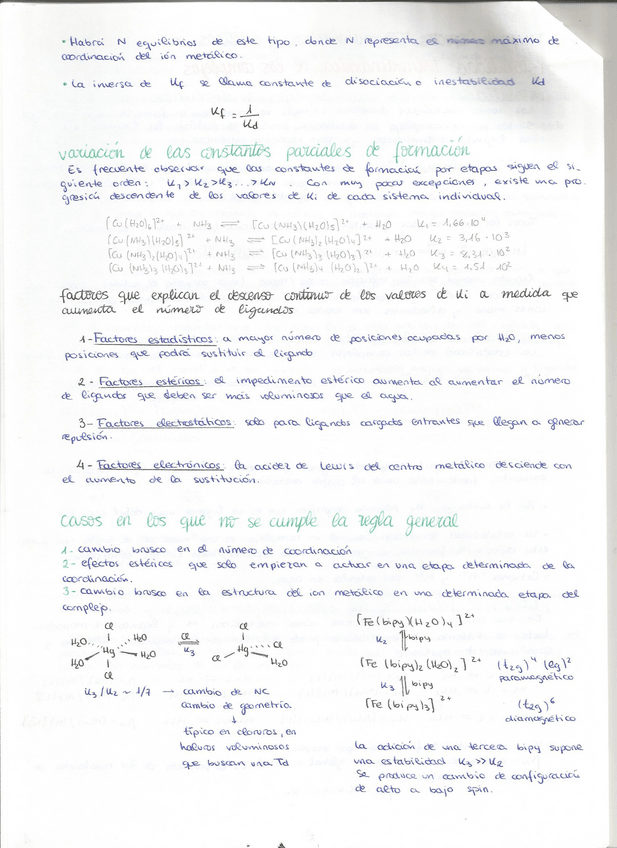 • Habrá N equilibrios de este tipo, donde N representa el número máximo de
coordinación del ión metálico.
• La inversa de Kf se llama constante de disociación o inestabilidad Kd
Kf = 1/Kd
variación de las constantes parciales de formación
Es frecuente observar que las constantes de formación por etapas siguen el si-
guiente orden: K1 > K2 > K3 ... > KN. Con muy pocas excepciones, existe una pro
gresión descendente de los valores de Ki de cada sistema individual.
[Cu(H2O)6]2+ + NH3 ⇌ [Cu(NH3)(H2O)5]2+ + H2O K1 = 1,66·10⁴
[Cu(NH3)(H2O)5]2+ + NH3 ⇌ [Cu(NH3)2(H2O)4]2+ + H2O K2 = 3,16·10³
[Cu(NH3)2(H2O)4]2+ + NH3 ⇌ [Cu(NH3)3(H2O)3]2+ + H2O K3 = 8,31·10²
[Cu(NH3)3(H2O)3]2+ + NH3 ⇌ [Cu(NH3)4(H2O)2]2+ + H2O K4 = 1,51 10²
factores que explican el descenso continuo de los valores de Ki a medida que
aumenta el número de ligandos
1- Factores estadísticos: a mayor número de posiciones ocupadas por H2O, menos
posiciones que podrá sustituir el ligando
2 - Factores estéricos: el impedimento estérico aumenta al aumentar el número
de ligandos que deben ser más voluminosos que el agua.
3- Factores electrostáticos: solo para ligandos cargados entrantes que llegan a generar
repulsión.
4- Factores electrónicos: la acidez de Lewis del centro metálico desciende con
el aumento de la sustitución.
casos en los que no se cumple la regla general
1- cambio brusco en el número de coordinación
2- efectos estéricos que solo empiezan a actuar en una etapa determinada de la
coordinación.
3- cambio brusco en la estructura del ion metálico en una determinada etapa del
complejo.
Cl Cl Cl [Fe(bipy)(H2O)4]2+
H2O H2O K3 Cl K2 bipy
Hg Hg
H2O H2O Cl H2O [Fe(bipy)2(H2O)2]2+ (t2g)⁴ (eg)²
Cl paramagnético
K3 bipy
K3/K2 ~ 1/7 → cambio de NC [Fe(bipy)3]2+ (t2g)⁶
cambio de geometría diamagnético
↓
típico en cloruros, en
haluros voluminosos
que buscan una Td
La adición de una tercera bipy supone
una estabilidad K3 >> K2
Se produce un cambio de configuración
de alto a bajo spin.